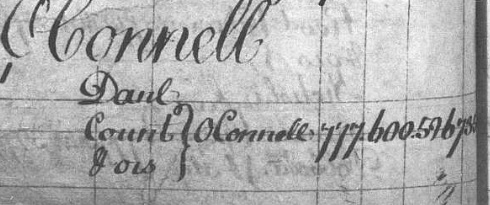 OConnell
Danl
Count } OConnell 777.600.596.
Jois